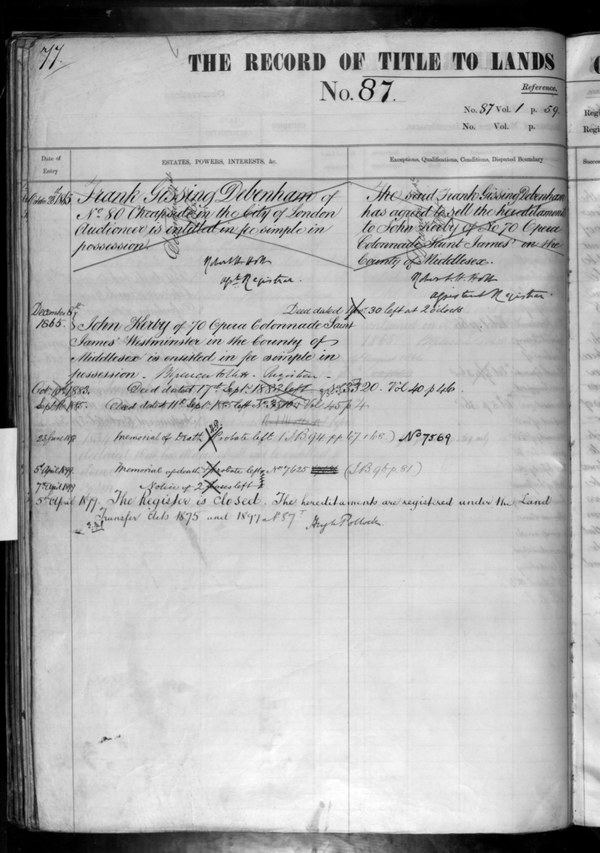 77.
THE RECORD OF TITLE TO LANDS
No. 87.
Reference.
No. 87 Vol. 1 p. 59
No. Vol. p.
Date of
Entry
ESTATES, POWERS, INTERESTS, &c.
Exceptions, Qualifications, Conditions, Disputed Boundary
1865
Frank Gissing Debenham of
No. 80 Cheapside in the City of London
Auctioneer is entitled in fee simple in
possession
Robert H. Holt
Asst. Registrar
The said Frank Gissing Debenham
has agreed to sell the hereditaments
to John Kerby of No 70 Opera
Colonnade Saint James' in the
County of Middlesex.
Robert H. Holt
Assistant Registrar
Deed dated 30 left at 2 o'clock
December
1865.
John Kerby of 70 Opera Colonnade Saint
James' Westminster in the County of
Middlesex is entitled in fee simple in
possession. Registrar
1883. Deed dated 17th Sept. left 20. Vol 40 p 46
Sept. Deed dated 11th Sept. left Vol 45 p 4
Memorial of Death Probate left No 7569
5th April 1899. Memorial of death probate left No 7625
7th April 1899 Notice of 2 left
April 1899. The Register is closed. The hereditaments are registered under the Land
Transfer Acts 1875 and 1897
Hugh Pollock